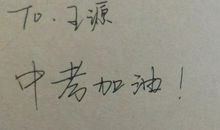 To. 王源
中考加油！